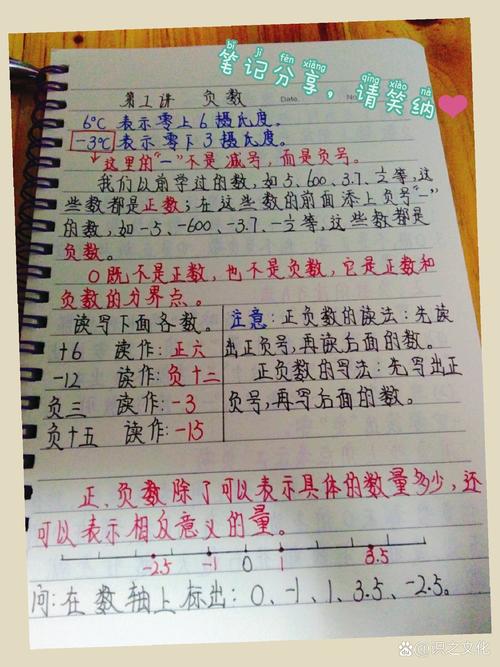 bǐ jì fēn xiǎng
笔记分享,
qǐng xiào nà
请笑纳
第1讲 负数
Date.
No
6℃ 表示零上6摄氏度。
-3℃ 表示零下3摄氏度。
这里的"一"不是减号,而是负号。
我们以前学过的数,如5、600、3.7、½等,这
些数都是正数;在这些数的前面添上负号"-"
的数,如-5、-600、-3.7、-½等,这些数都是
负数。
0既不是正数,也不是负数,它是正数和
负数的分界点。
读写下面各数。
+6 读作:正六
-12 读作:负十二
负三 读作:-3
负十五 读作:-15
注意:正负数的读法:先读
出正负号,再读后面的数。
正负数的写法:先写出正
负号,再写后面的数。
正、负数除了可以表示具体的数量多少,还
可以表示相反意义的量。
-2.5 -1 0 1 3.5
问:在数轴上标出:0、-1、1、3.5、-2.5。
Bai百家号/识之文化